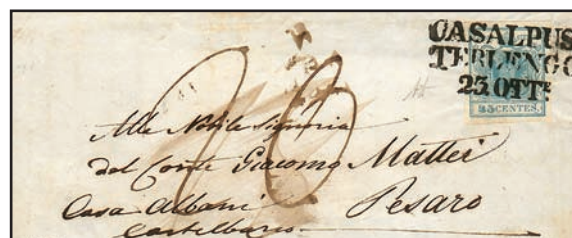 CASALPUS
TERLENGO
25. OTTE
45 CENTES.
Alla Nobile Signoria
del Conte Giacomo Mattei
Casa Albani Pesaro